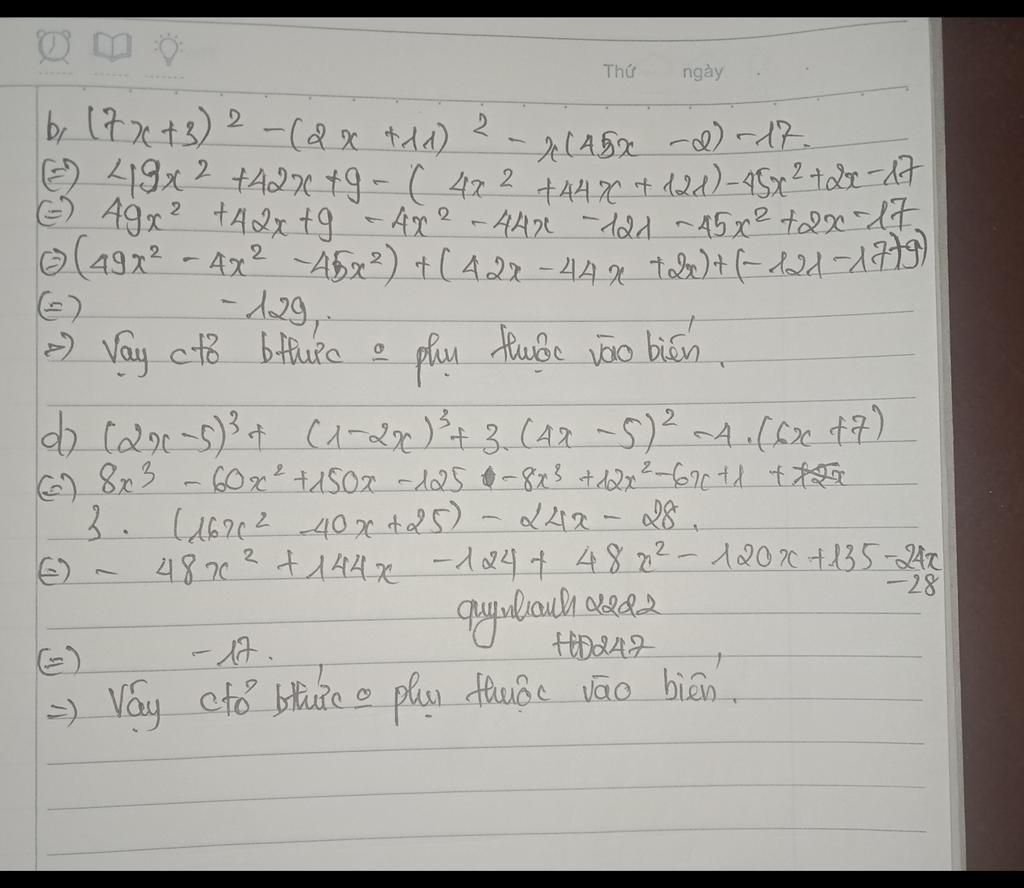 Thứ ngày
b, (7x+3)² -(2x +11)² - x(45x -2) -17.
(=) 49x² +42x+9 - (4x² +44x +121) -45x²+2x -17
(=) 49x² +42x+9 -4x² -44x -121 -45x²+2x-17
(=) (49x² -4x² -45x²) + (42x -44x +2x)+(-121 -17+9)
(=) -129,.
=> Vậy ctỏ bthức o phụ thuộc vào biến.
d) (2x -5)³+ (1-2x)³+ 3.(4x -5)² -4.(6x +7)
(=) 8x³ -60x²+150x -125 -8x³ +12x²-6x+1 +
3. (16x² -40x+25) -24x - 28.
(=) - 48x² +144x -124+ 48x² - 120x +135 -24x
-28
quynhanh2222
HD247
(=) -17.
=) Vậy ctỏ bthức o phụ thuộc vào biến.